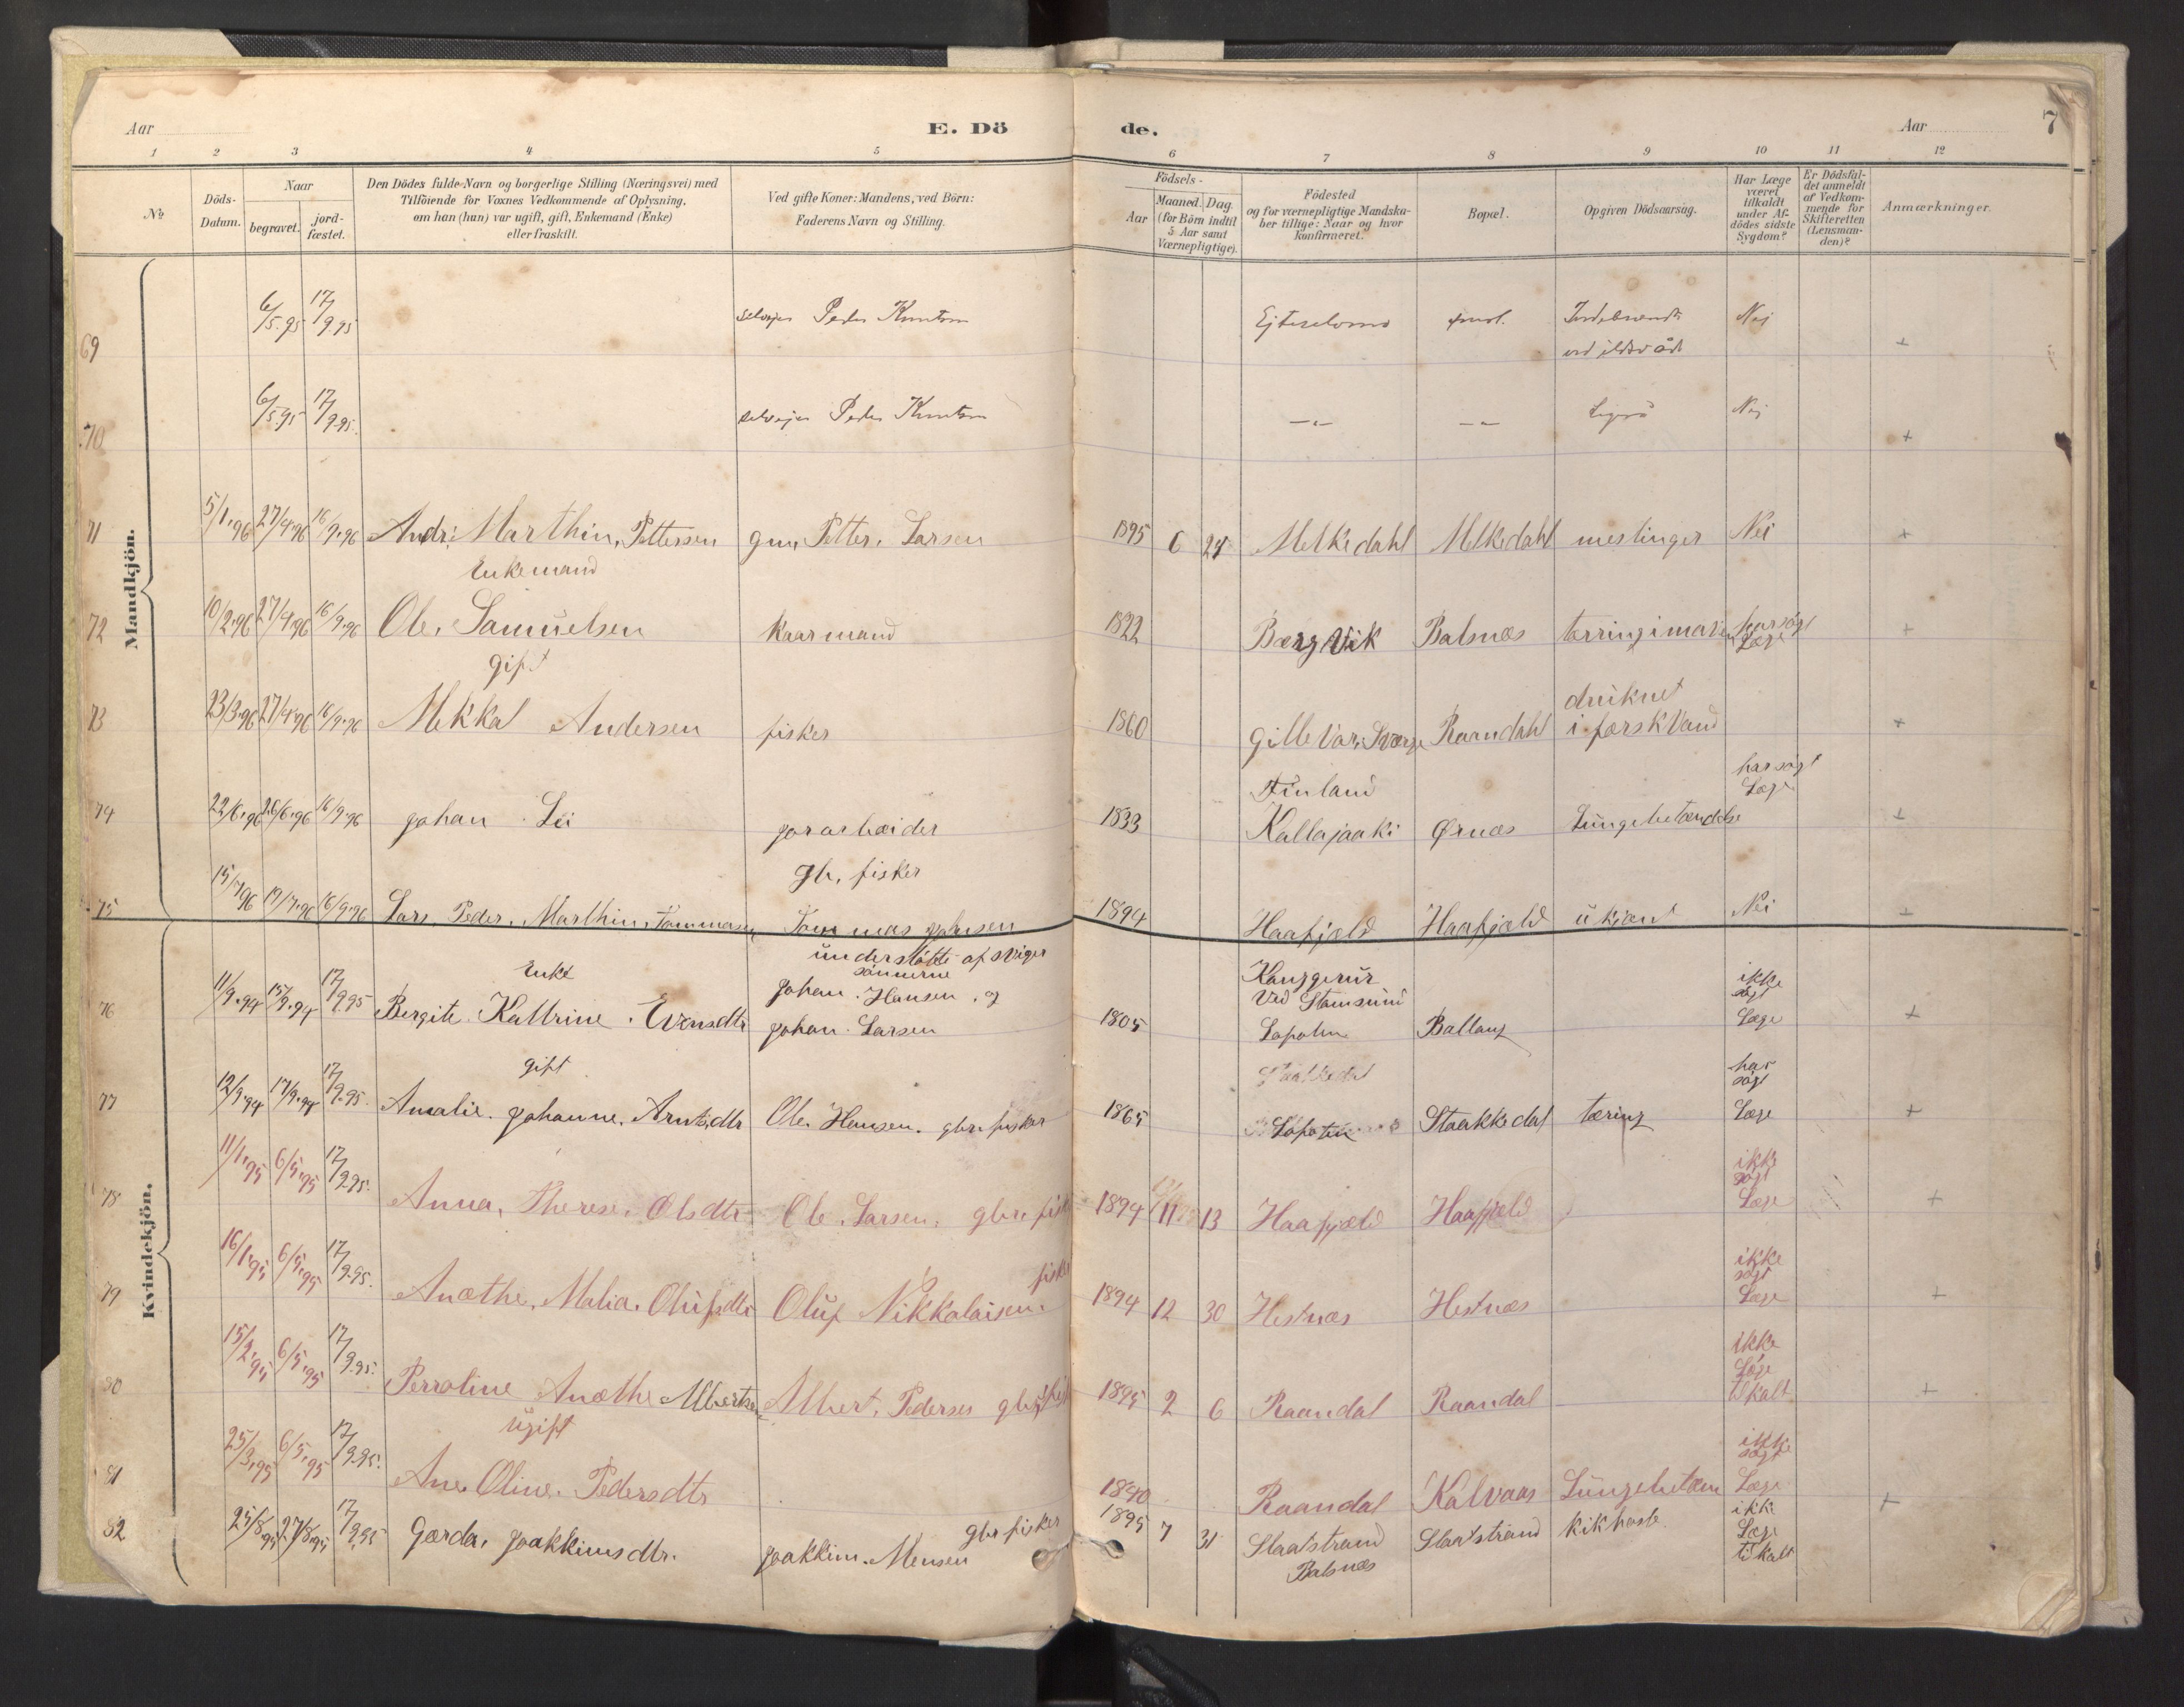 Aar E. Dö de. Aar 7
1 2 3 4 5 6 7 8 9 10 11 12
No.
Döds-
Datum.
Naar
begravet.
jord-
fæstet.
Den Dödes fulde Navn og borgerlige Stilling (Næringsvei) med
Tilföiende for Voxnes Vedkommende af Oplysning,
om han (hun) var ugift, gift, Enkemand (Enke)
eller fraskilt.
Ved gifte Koner: Mandens, ved Börn:
Faderens Navn og Stilling.
Födsels-
Aar
Maaned. Dag.
(for Börn indtil
5 Aar samt
Værnepligtige).
Födested
og for værnepligtige Mandska-
ber tillige: Naar og hvor
konfirmeret.
Bopæl.
Opgiven Dödsaarsag.
Har Læge
været
tilkaldt
under Af-
dödes sidste
Sygdom?
Er Dödsfal-
det anmeldt
af Vedkom-
mende for
Skifteretten
(Lensman-
den)?
Anmærkninger.
Mandkjön.
69 6/5.95 17/9 95 selvejer Peder Knutsen Nej +
ved ildsvåde
70 6/5.95 17/9.95. selvejer Peder Knutsen —"— —"— Nej +
71 5/1.96 27/4.96 16/9.96 Andr: Marthin, Pettersen gm, Petter, Larsen 1895 6 24 Melkedahl Melkedahl meslinger Nei +
Enkemand
72 10/2.96 27/4.96 16/9.96 Ole, Samuelsen Kaarmand 1822 Bærg Vik Balsnæs har søgt Læge +
gift
73 23/3.96 27/4.96 16/9.96 Mekkal Andersen fisker 1860 Gille Var, Sværge Raandahl druknet
i færsk Vand +
74 22/6.96 26/6.96 16/9.96 Johan Lii jorarbæider 1833 Finland
Kallajaaki Ørnæs Lungebetændelse har søgt
Læge +
gbr, fisker
75 15/7 96 19/7.96 16/9.96 Lars Peder, Marthin, Tommasen Tommas Johnsen 1894 Haafjæld Haafjæld ukjænt Nei +
Kvindekjön.
Enke
76 11/9.94 15/9.94 17/9.95 Bergite Kattrine Evensdtr understøttet af sviger
sønnerne
Johan Hansen, og
Johan Larsen 1805
Ved Stamsund
Lofoten Ballang ikke
søgt
Læge +
gift
77 12/9.94 17/9.94 17/9.95. Amalie Johanne, Arntsdtr Ole Hansen. gbr fisker 1865 Lofoten Staakkedal tæring har
søgt
Læge +
78 11/1.95 6/5.95 17/9.95. Anna, Therese, Olsdtr Ole, Larsen, gbr, fisk 1894 11 13 Haafjæld Haafjæld ikke
søgt
Læge +
79 16/1.95 6/5.95 17/9.95. Anæthe, Malia, Olufsdtr Oluf Nikkolaisen, fisker 1894 12 30 Hestnæs Hestnæs ikke
søgt
Læge +
80 15/2.95 6/5.95 17/9.95. Perroline Anæthe Albertsen Albert, Pedersen 1895 2 6 Raandal Raandal ikke
Læge
tilkalt +
ugift
81 25/3.95 6/5.95 17/9.95. Ane Oline Pedersdtr 1840 Raandal Kalvaas Lungebetæn ikke
søgt
Læge +
82 25/8.95 27/8.95 17/9.95 Gærda, Joakkimsdtr. gbr fisker
Joakkim. Mensen 1895 7 31 Slaatstrand
Balsnæs Slaatstrand kikhoste ikk
Læge
tilkalt